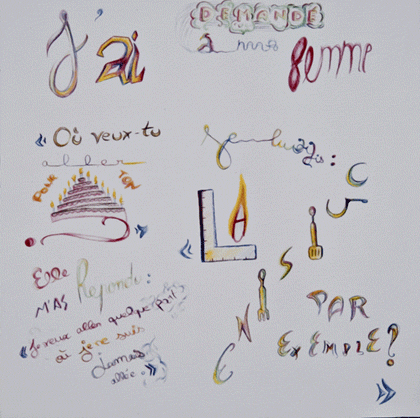 J'ai
DEMANDÉ
à ma femme
« Où veux-tu
aller
POUR TON
? »
Elle
M'AS Répondu :
« Je veux aller quelque part
où je ne suis
jamais
allée. »
Je lui ai dis :
« LA
CUISINE
PAR
EXEMPLE ?
»